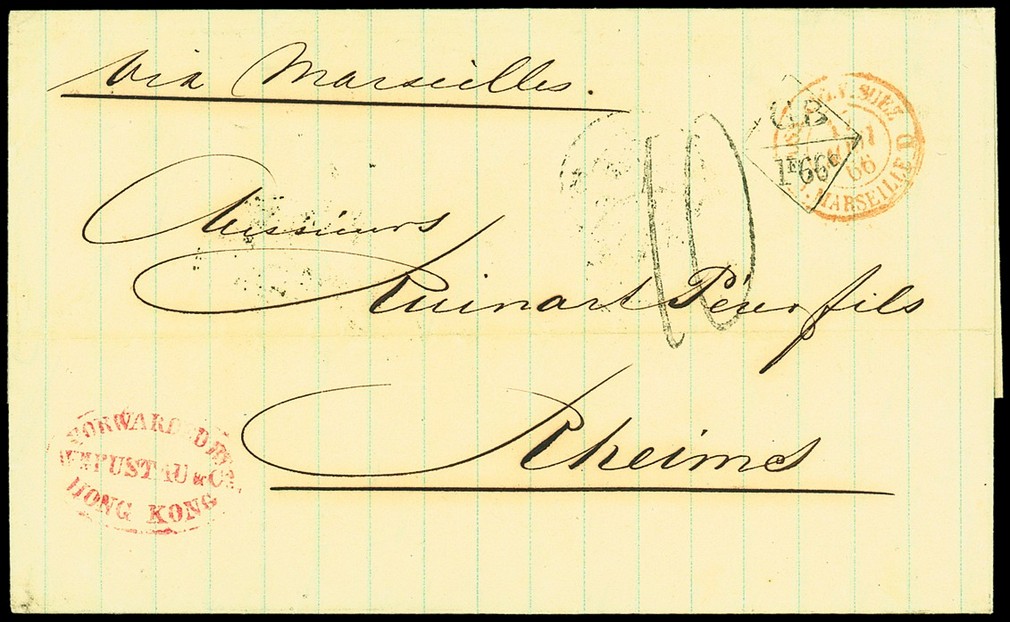 via Marseilles.
GB
1F66c
SUEZ
66
MARSEILLE
10
Messieurs
Ruinart Père & fils
Rheims
FORWARDED BY
Wm PUSTAU & Co.
HONG KONG